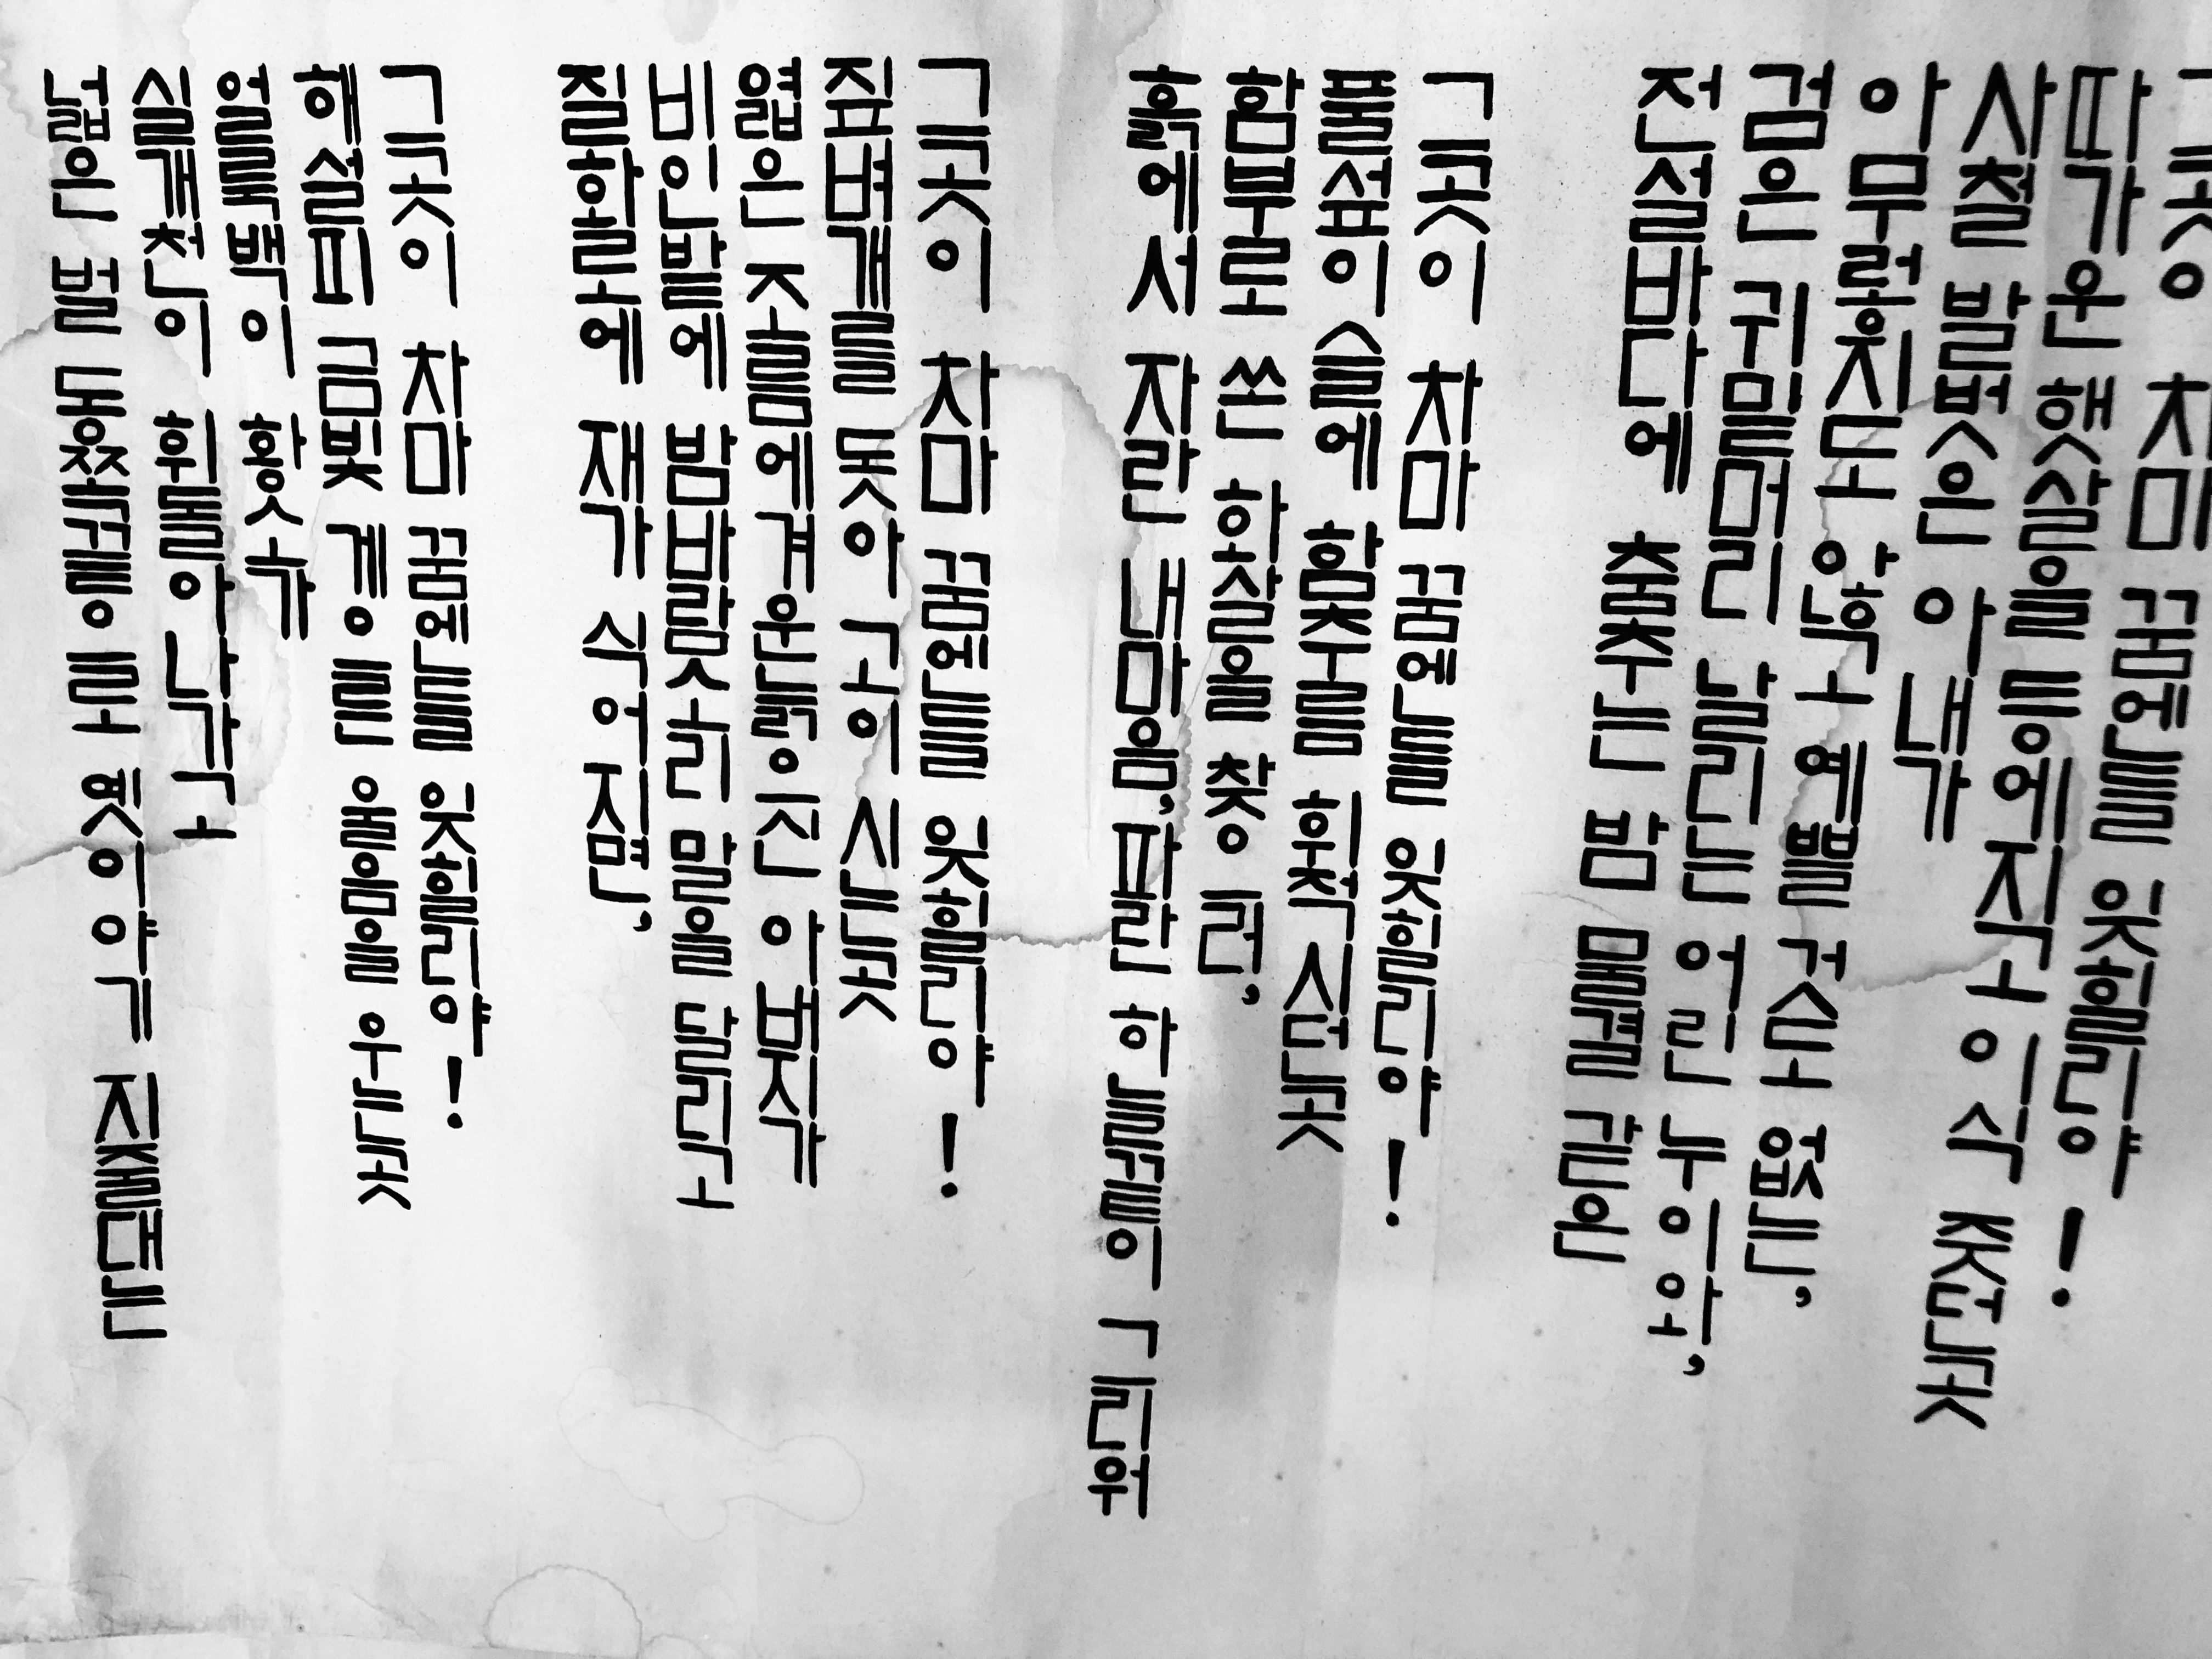 넓은 벌 동쪽끝으로 옛이야기 지줄대는
실개천이 휘돌아나가고
얼룩백이 황소가
해설피 금빛 게으른 울음을 우는곳
그곳이 차마 꿈엔들 잊힐리야!
질화로에 재가 식어지면,
비인밭에 밤바람소리 말을 달리고
엷은 조름에겨운늙으신 아버지가
짚벼개를 돗아 고이 시는곳
그곳이 차마 꿈엔들 잊힐리야!
흙에서 자란 내마음, 파란 하늘끝이 그리워
함부로 쏜 화살을 찾으러,
풀섶이슬에 함추름 휘적시던곳
그곳이 차마 꿈엔들 잊힐리야!
전설바다에 춤추는 밤 물결 같은
검은 귀밑머리 날리는 어린 누이와,
아무렇지도 않고 예쁠 것도 없는,
사철 발벗은 아내가
따가운 햇살을 등에지고 이삭 줏던곳
차마 꿈엔들 잊힐리야!